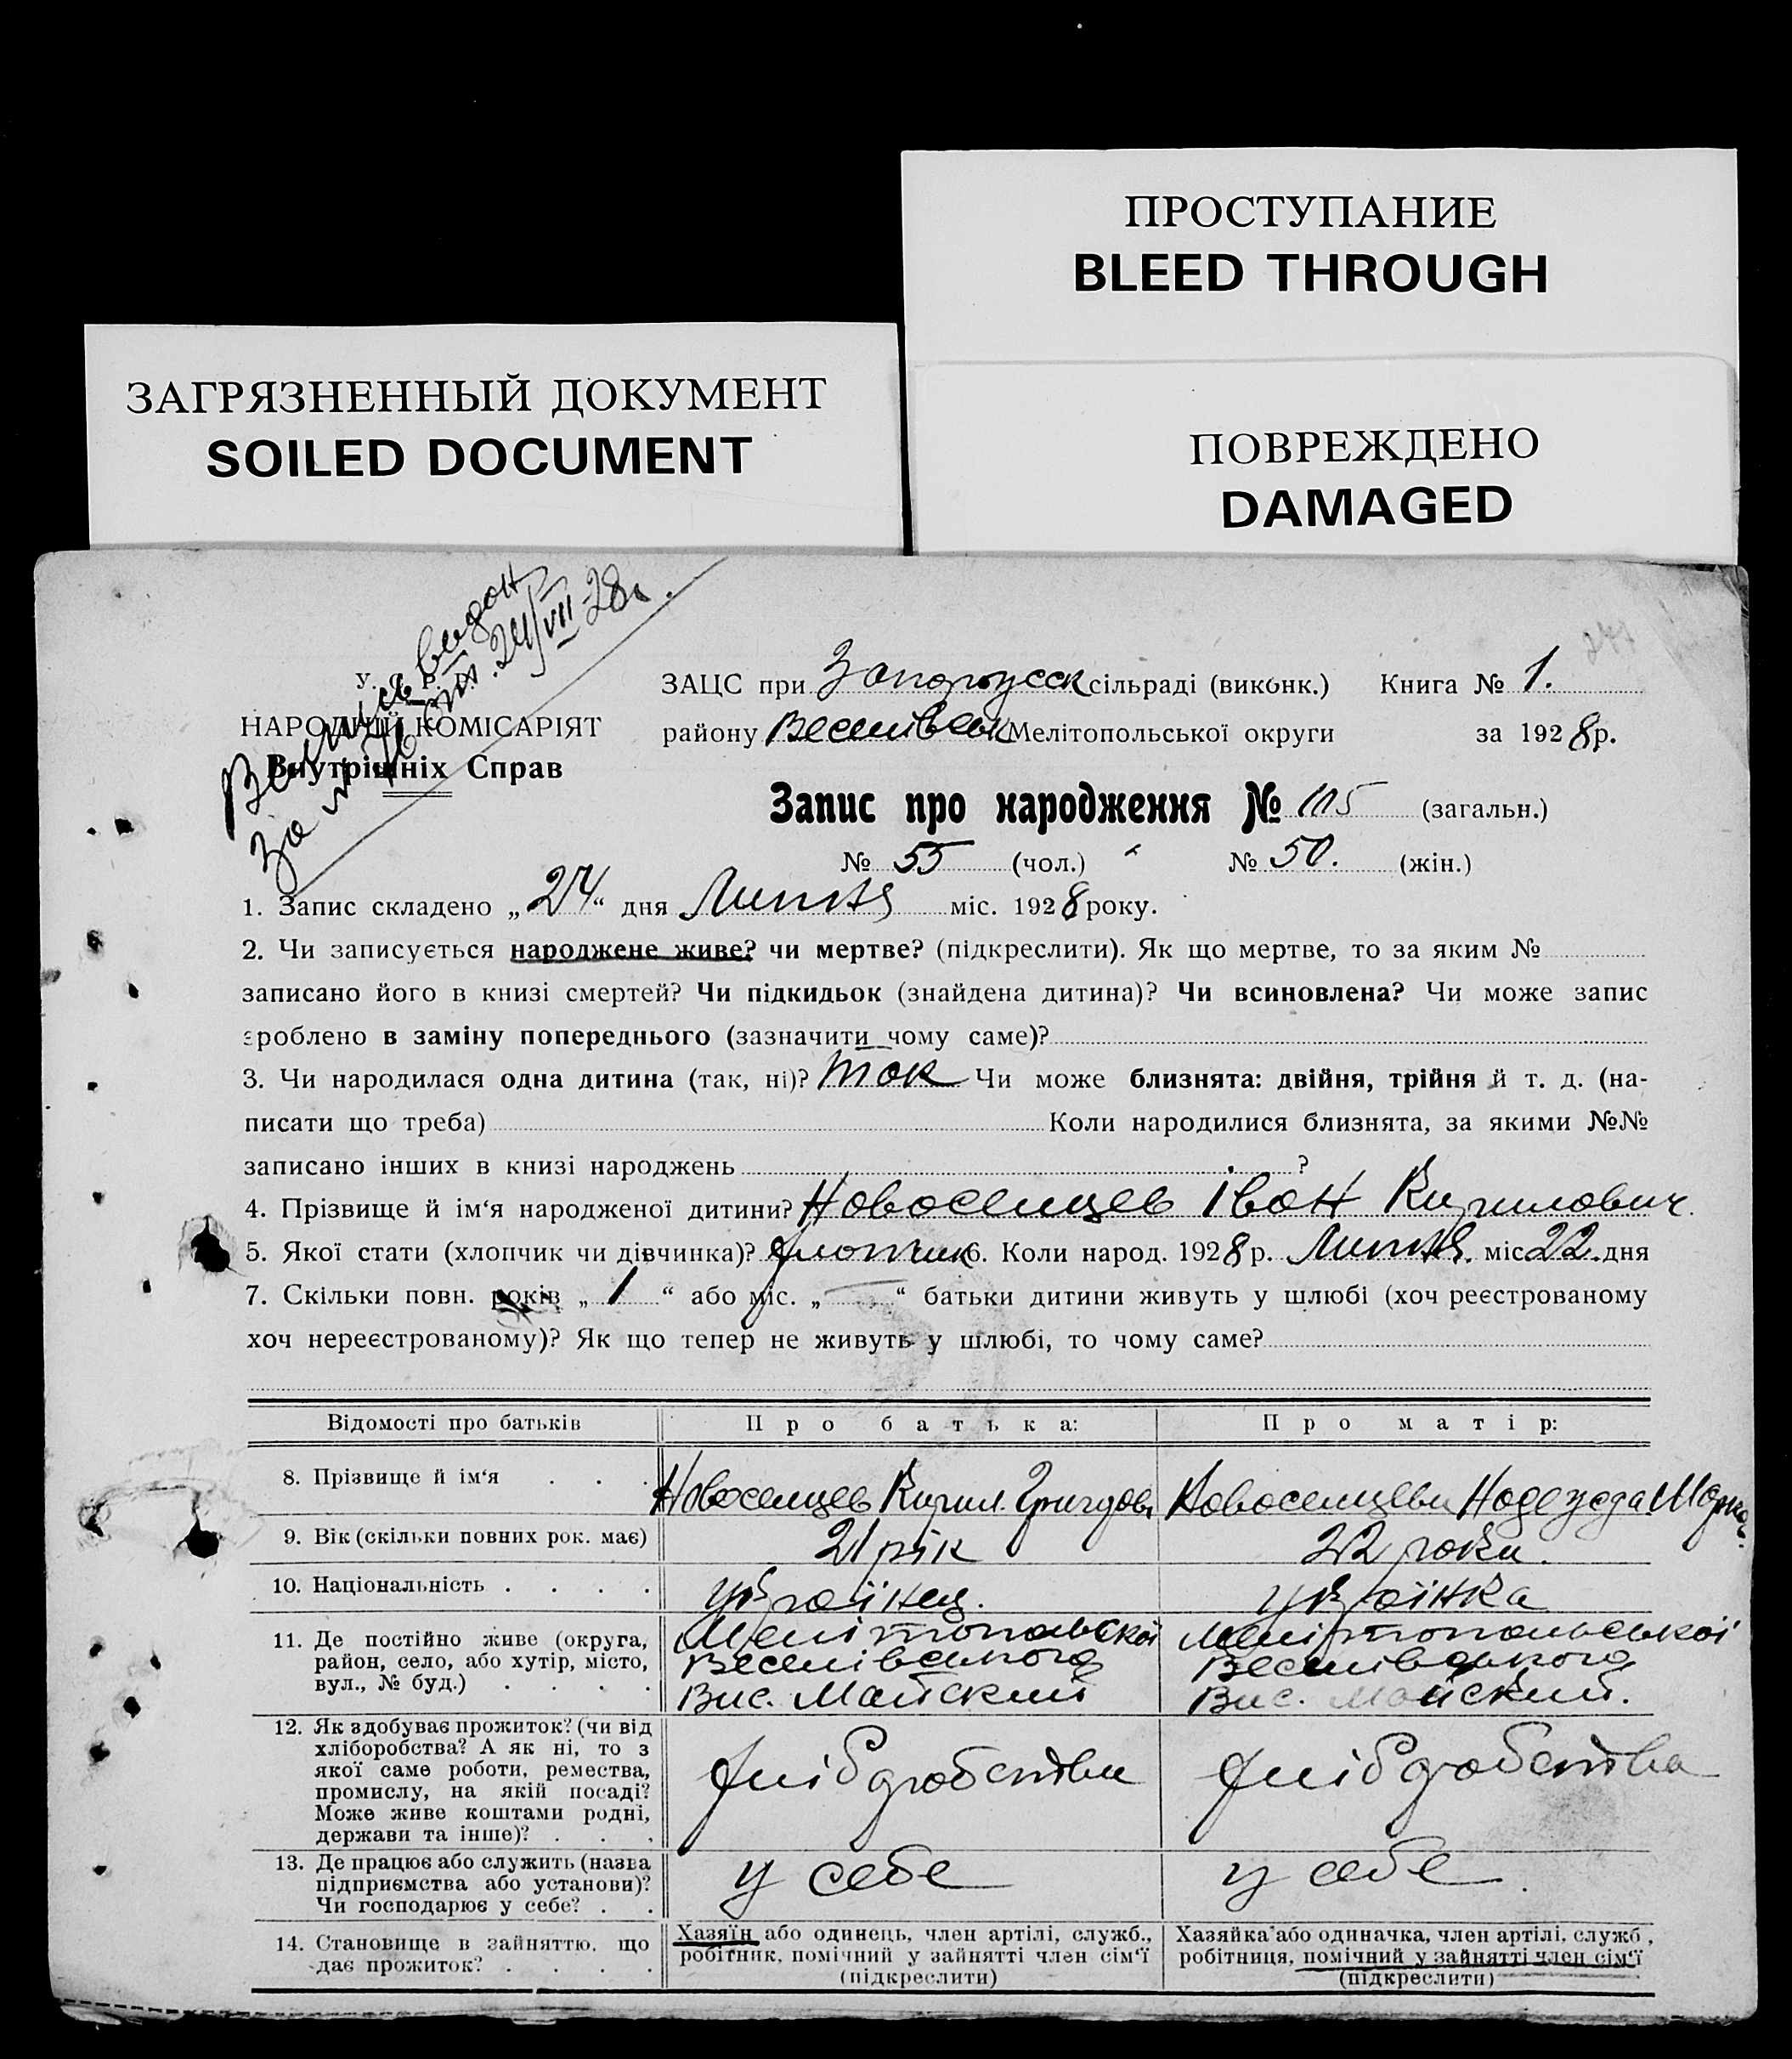 ПРОСТУПАНИЕ
BLEED THROUGH
ЗАГРЯЗНЕННЫЙ ДОКУМЕНТ
SOILED DOCUMENT
ПОВРЕЖДЕНО
DAMAGED
24/VII 28
У. Р.
НАРОДНІЙ КОМІСАРІЯТ
Внутрішніх Справ
ЗАЦС при сільраді (виконк.) Книга № 1.
району Веселівськ Мелітопольської округи за 1928р.
Запис про народження № 105 (загальн.)
№ 55 (чол.) № 50. (жін.)
1. Запис складено „24“ дня Липня міс. 1928 року.
2. Чи записується народжене живе? чи мертве? (підкреслити). Як що мертве, то за яким №
записано його в книзі смертей? Чи підкидьок (знайдена дитина)? Чи всиновлена? Чи може запис
зроблено в заміну попереднього (зазначити чому саме)?
3. Чи народилася одна дитина (так, ні)? так Чи може близнята: двійня, трійня й т. д. (на-
писати що треба) Коли народилися близнята, за якими №№
записано інших в книзі народжень ?
4. Прізвище й ім‘я народженої дитини? Новоселцев Іван Кирилович.
5. Якої стати (хлопчик чи дівчинка)? хлопчик 6. Коли народ. 1928р. Липня. міс 22. дня
7. Скільки повн. років „1“ або міс. „—“ батьки дитини живуть у шлюбі (хоч реєстрованому
хоч нереєстрованому)? Як що тепер не живуть у шлюбі, то чому саме?
Відомості про батьків Про батька: Про матір:
8. Прізвище й ім‘я . . . Новоселцев Кирил. Новоселцева
9. Вік (скільки повних рок. має) 21 рік 22 роки.
10. Національність . . . . українец. українка
11. Де постійно живе (округа, Мелітопольскої Мелітопольської
район, село, або хутір, місто, Веселівського Веселівського
вул., № буд.) . . . . Вис. Майский Вис. Майский.
12. Як здобуває прожиток? (чи від
хліборобства? А як ні, то з
якої саме роботи, ремества, хліборобства хліборобства
промислу, на якій посаді?
Може живе коштами родні,
держави та інше)? . . .
13. Де працює або служить (назва
підприємства або установи)? у себе у себе.
Чи господарює у себе? . .
14. Становище в зайняттю, що Хазяїн або одинець, член артілі, служб., Хазяйка або одиначка, член артілі, служб,
дає прожиток? . . . . робітник, помічний у зайнятті член сім‘ї робітниця, помічний у зайнятті член сім‘ї
(підкреслити) (підкреслити)